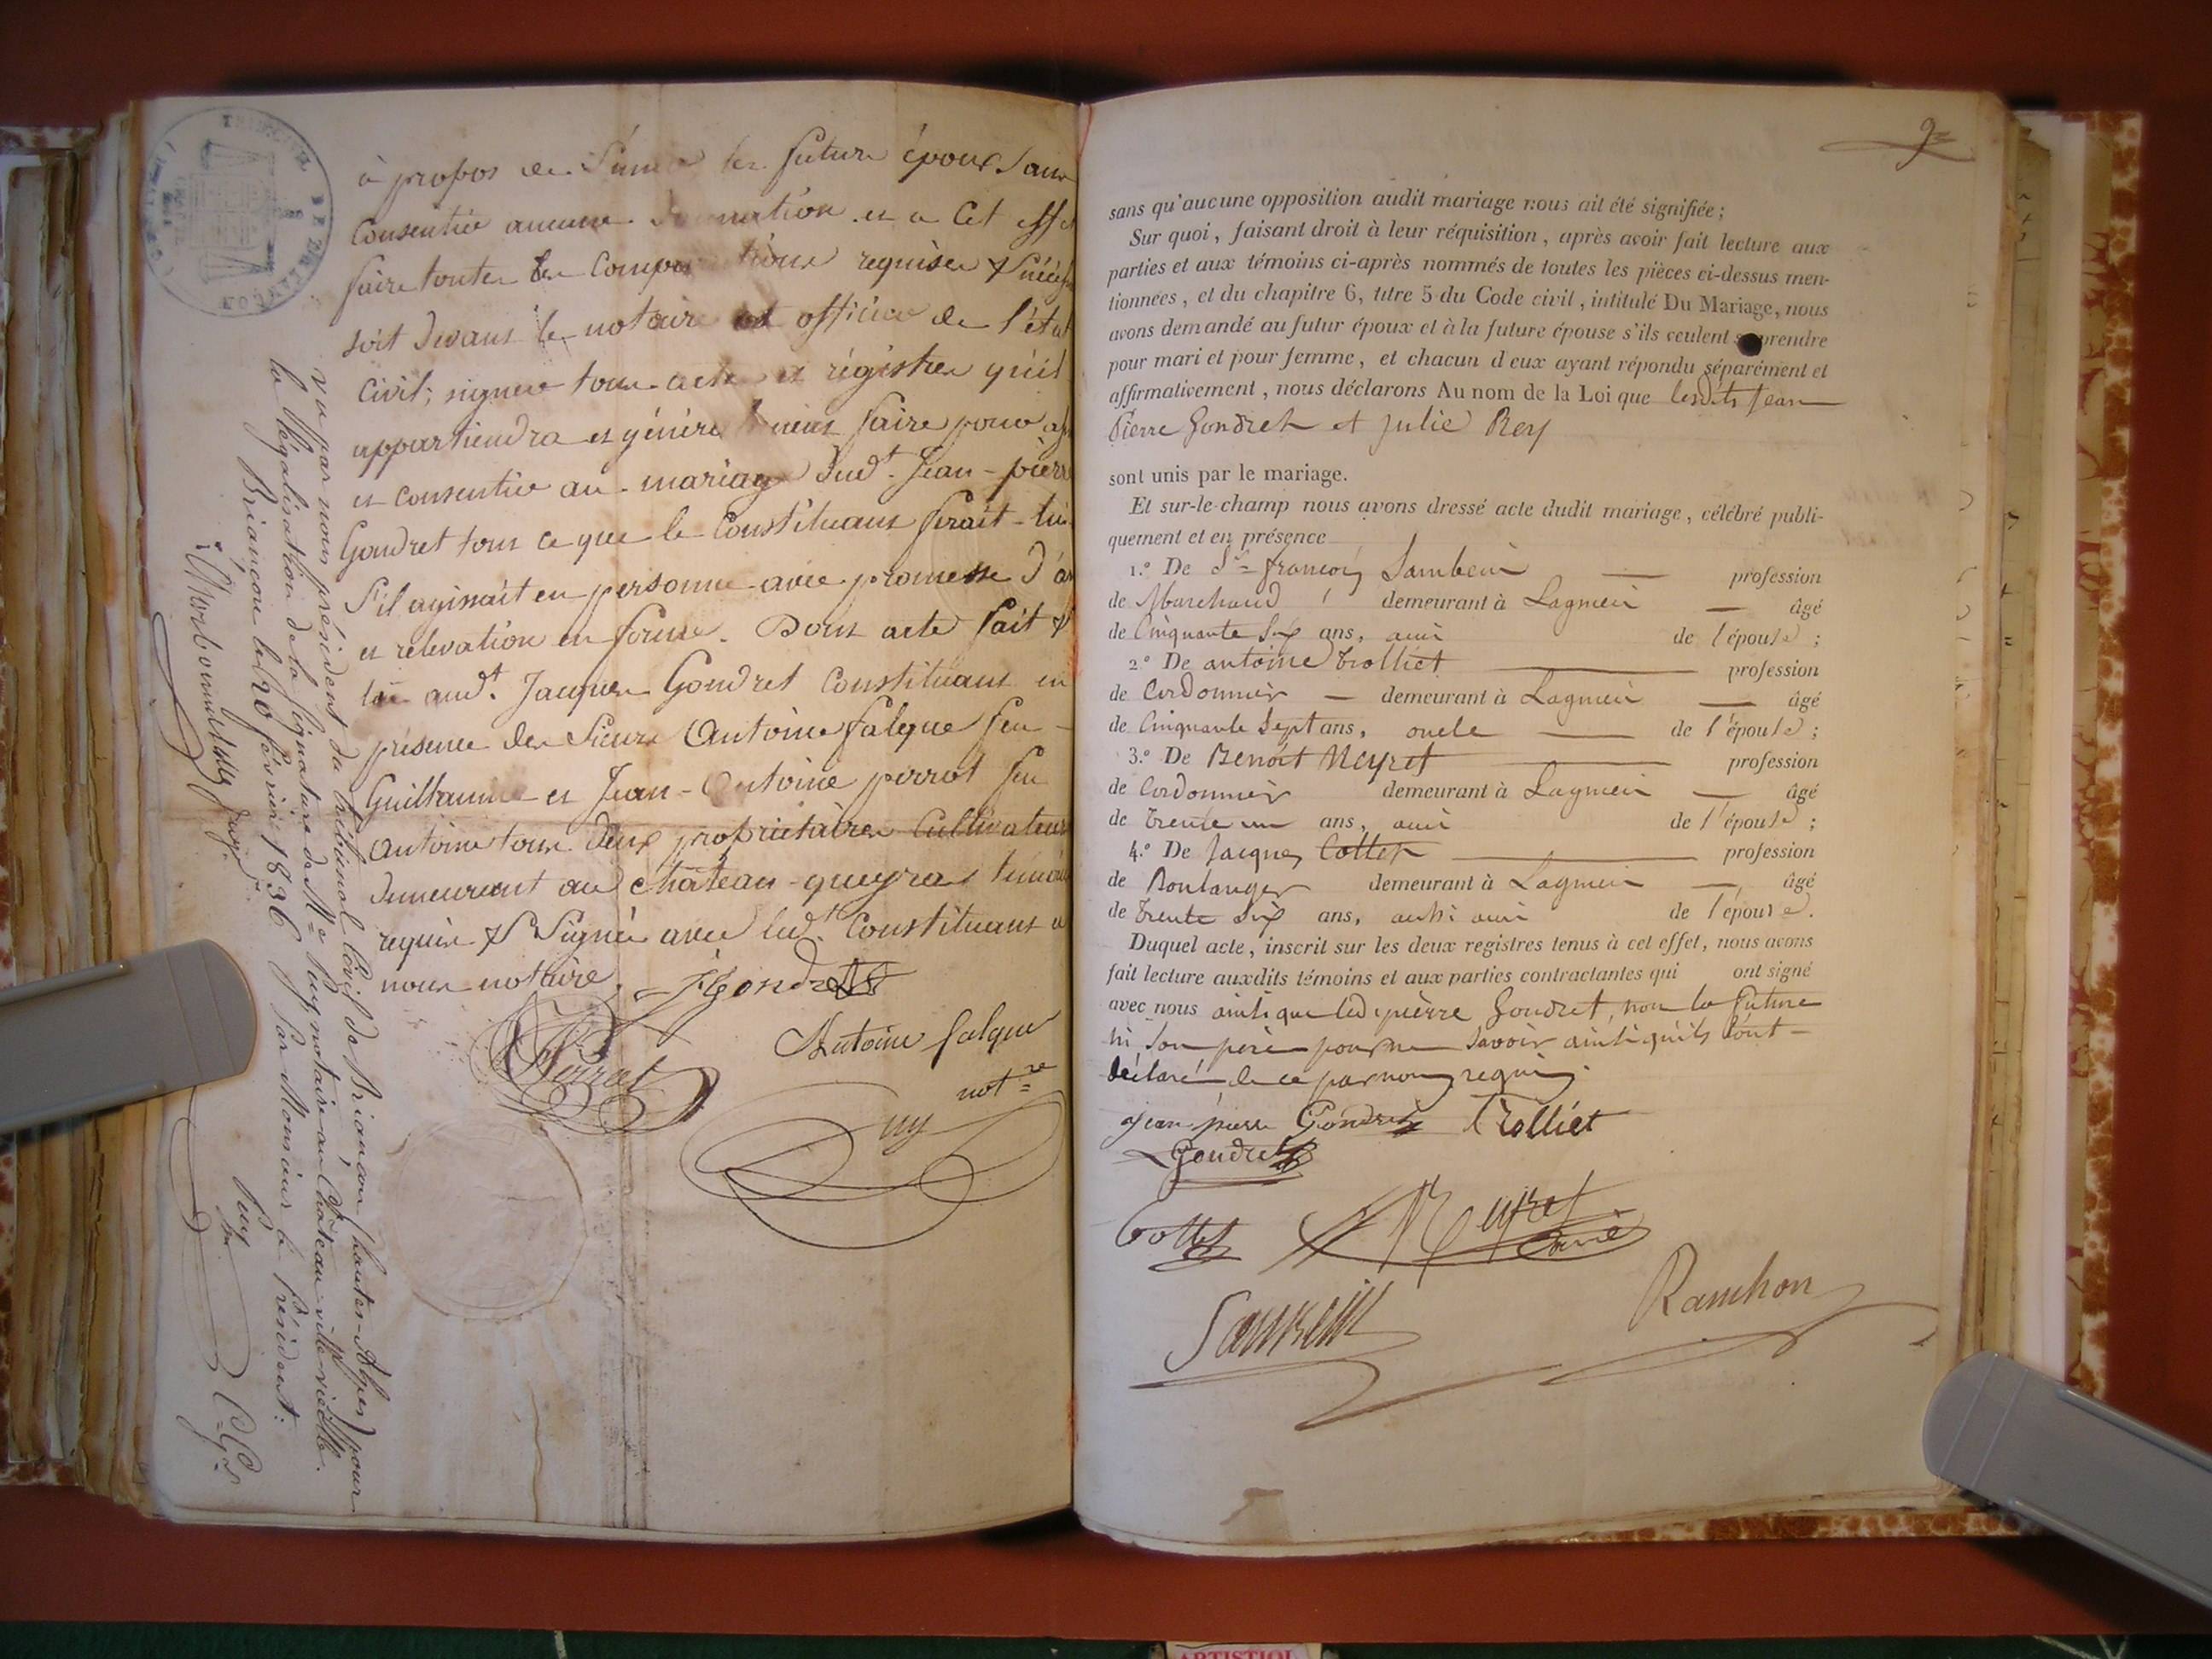 à propos de les future époux sans
Consentir aucune et a Cet effet
faire toutes les requises &
soit devant le notaire et officier de l'état
Civil; signer tous actes et régistres qu'il
appartiendra et faire pour
et consentir au mariage dud.t Jean-pierre
Gondret tout ce que le Constituant ferait-lui
S'il agissait en personne avec promesse
et relevation en forme. Dont acte fait &
aud.t Jacques Gondret Constituant en
présence des Sieurs Antoine falque feu
Guillaume et Jean-Antoine pirrot feu
antoine tous deux propriétaires Cultivateurs
demeurant au château-queyras
requis & Signés avec led.t Constituant &
nous notaire. Gondret
Antoine falque
not=re
Puy
vu par nous président du tribunal Civil de Briançon (hautes-Alpes) pour
la légalisation de la signature de M=e Puy notaire au Château-ville-vieille.
Briançon le 20 février 1836 par Monsieur le Président:
Juge
Puy
9=
sans qu'aucune opposition audit mariage nous ait été signifiée;
Sur quoi, faisant droit à leur réquisition, après avoir fait lecture aux
parties et aux témoins ci-après nommés de toutes les pièces ci-dessus men-
tionnées, et du chapitre 6, titre 5 du Code civil, intitulé Du Mariage, nous
avons demandé au futur époux et à la future épouse s'ils veulent se prendre
pour mari et pour femme, et chacun d'eux ayant répondu séparément et
affirmativement, nous déclarons Au nom de la Loi que lesdits Jean
Pierre Gondret et Julie Rey
sont unis par le mariage.
Et sur-le-champ nous avons dressé acte dudit mariage, célébré publi-
quement et en présence
1.° De S.r françois Sambein profession
de Marchand demeurant à Lagnieu âgé
de Cinquante Six ans, ami de l'épouse;
2.° De antoine trolliet profession
de Cordonnier demeurant à Lagnieu âgé
de Cinquante Sept ans, oncle de l'épouse;
3.° De Benoit Neyret profession
de Cordonnier demeurant à Lagnieu âgé
de trente un ans, ami de l'épouse;
4.° De Jacques Cottet profession
de Boulanger demeurant à Lagnieu âgé
de trente Six ans, aussi ami de l'épouse.
Duquel acte, inscrit sur les deux registres tenus à cet effet, nous avons
fait lecture auxdits témoins et aux parties contractantes qui ont signé
avec nous ainsi que led pierre Gondret, non la future
ni Son père pour ne Savoir ainsi qu'ils l'ont
déclaré de ce par nous requis.
jean pierre Gondret Trolliet
Gondret
Cottet Neyret
Sambein Ramhon